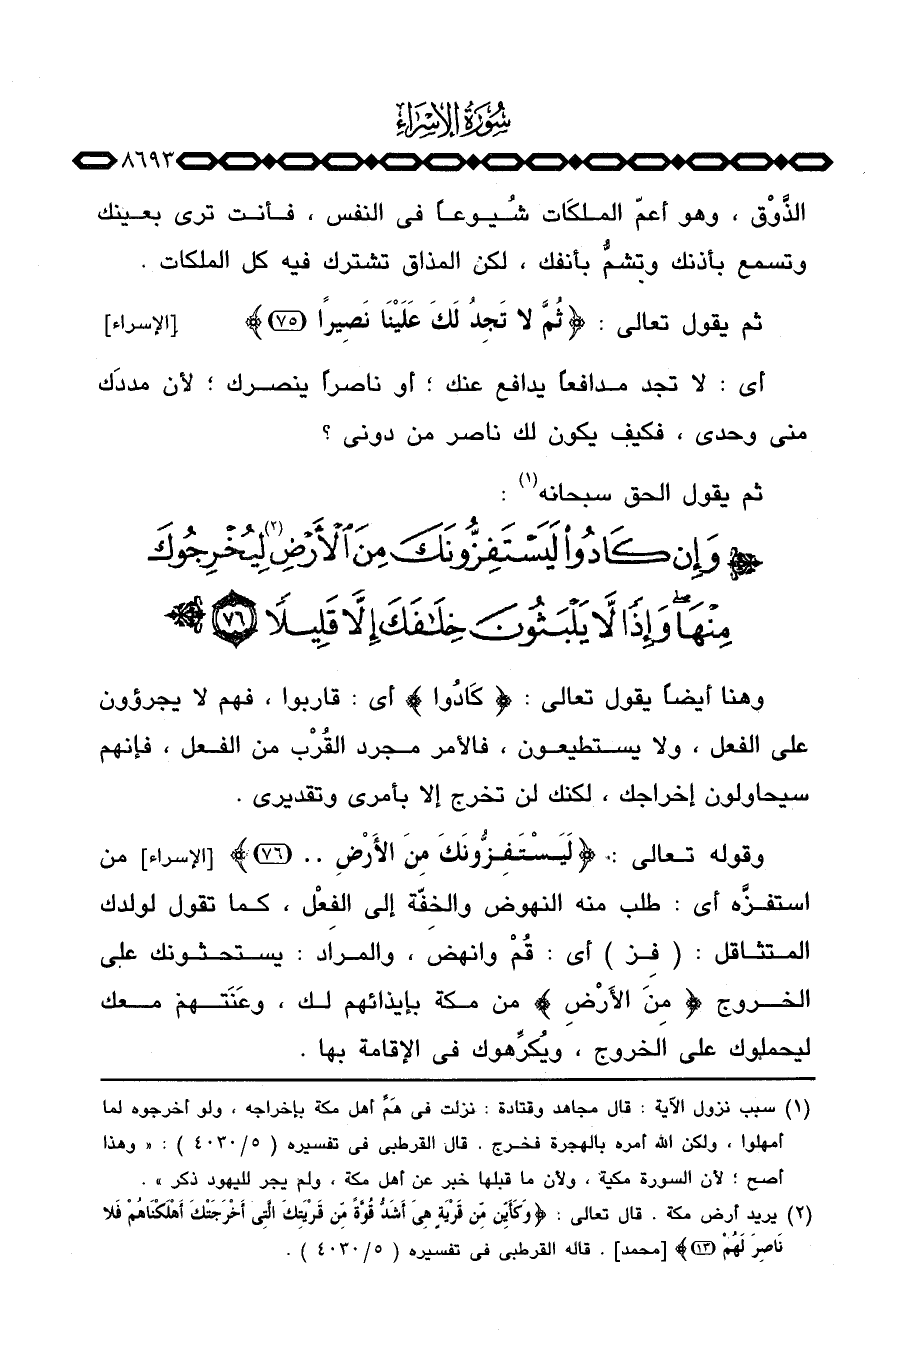 سُورَةُ الإِسْرَاءِ
٨٦٩٣
الذَّوْق ، وهو أعمّ الملكَات شُيوعاً فى النفس ، فأنت ترى بعينك
وتسمع بأذنك وتشمُّ بأنفك ، لكن المذاق تشترك فيه كل الملكات .
ثم يقول تعالى : ﴿ ثُمَّ لا تَجِدُ لَكَ عَلَيْنَا نَصِيرًا (٧٥) ﴾ [الإسراء]
أى : لا تجد مدافعاً يدافع عنك ؛ أو ناصراً ينصرك ؛ لأن مددَك
منى وحدى ، فكيف يكون لك ناصر من دونى ؟
ثم يقول الحق سبحانه(١) :
﴿ وَإِن كَادُوا۟ لَيَسْتَفِزُّونَكَ مِنَ ٱلْأَرْضِ(٢) لِيُخْرِجُوكَ
مِنْهَا ۖ وَإِذًا لَّا يَلْبَثُونَ خِلَٰفَكَ إِلَّا قَلِيلًا (٧٦) ﴾
وهنا أيضاً يقول تعالى : ﴿ كَادُوا ﴾ أى : قاربوا ، فهم لا يجرؤون
على الفعل ، ولا يستطيعون ، فالأمر مجرد القُرْب من الفعل ، فإنهم
سيحاولون إخراجك ، لكنك لن تخرج إلا بأمرى وتقديرى .
وقوله تعالى : ﴿ لَيَسْتَفِزُّونَكَ مِنَ الأَرْضِ .. (٧٦) ﴾ [الإسراء] من
استفزَّه أى : طلب منه النهوض والخفّة إلى الفِعْل ، كما تقول لولدك
المتثاقل : ( فِز ) أى : قُمْ وانهض ، والمراد : يستحثونك على
الخروج ﴿ مِنَ الأَرْضِ ﴾ من مكة بإيذائهم لك ، وعَنَتهم معك
ليحملوك على الخروج ، ويُكرِّهوك فى الإقامة بها .
(١) سبب نزول الآية : قال مجاهد وقتادة : نزلت فى هَمِّ أهل مكة بإخراجه ، ولو أخرجوه لما
أمهلوا ، ولكن الله أمره بالهجرة فخرج . قال القرطبى فى تفسيره ( ٤٠٣٠/٥ ) : « وهذا
أصح ؛ لأن السورة مكية ، ولأن ما قبلها خبر عن أهل مكة ، ولم يجر لليهود ذكر » .
(٢) يريد أرض مكة . قال تعالى : ﴿ وَكَأَيِّن مِّن قَرْيَةٍ هِىَ أَشَدُّ قُوَّةً مِّن قَرْيَتِكَ الَّتِى أَخْرَجَتْكَ أَهْلَكْنَاهُمْ فَلا
نَاصِرَ لَهُمْ (١٣) ﴾ [محمد] . قاله القرطبى فى تفسيره ( ٤٠٣٠/٥ ) .